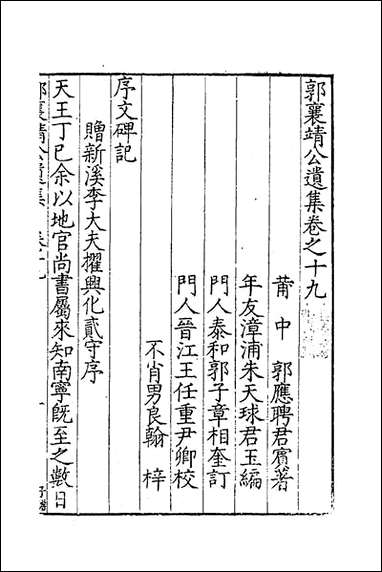 郭襄靖公遺集卷之十九
莆中郭應聘君賓著
年友漳浦朱天球君玉編
門人泰和郭子章相奎訂
門人晉江王任重尹卿校
不肖男良翰梓
序文碑記
贈新溪李大夫擢興化貳守序
天王丁巳余以地官尚書屬來知南寧旣至之數日
郭襄靖公遺集
卷十九